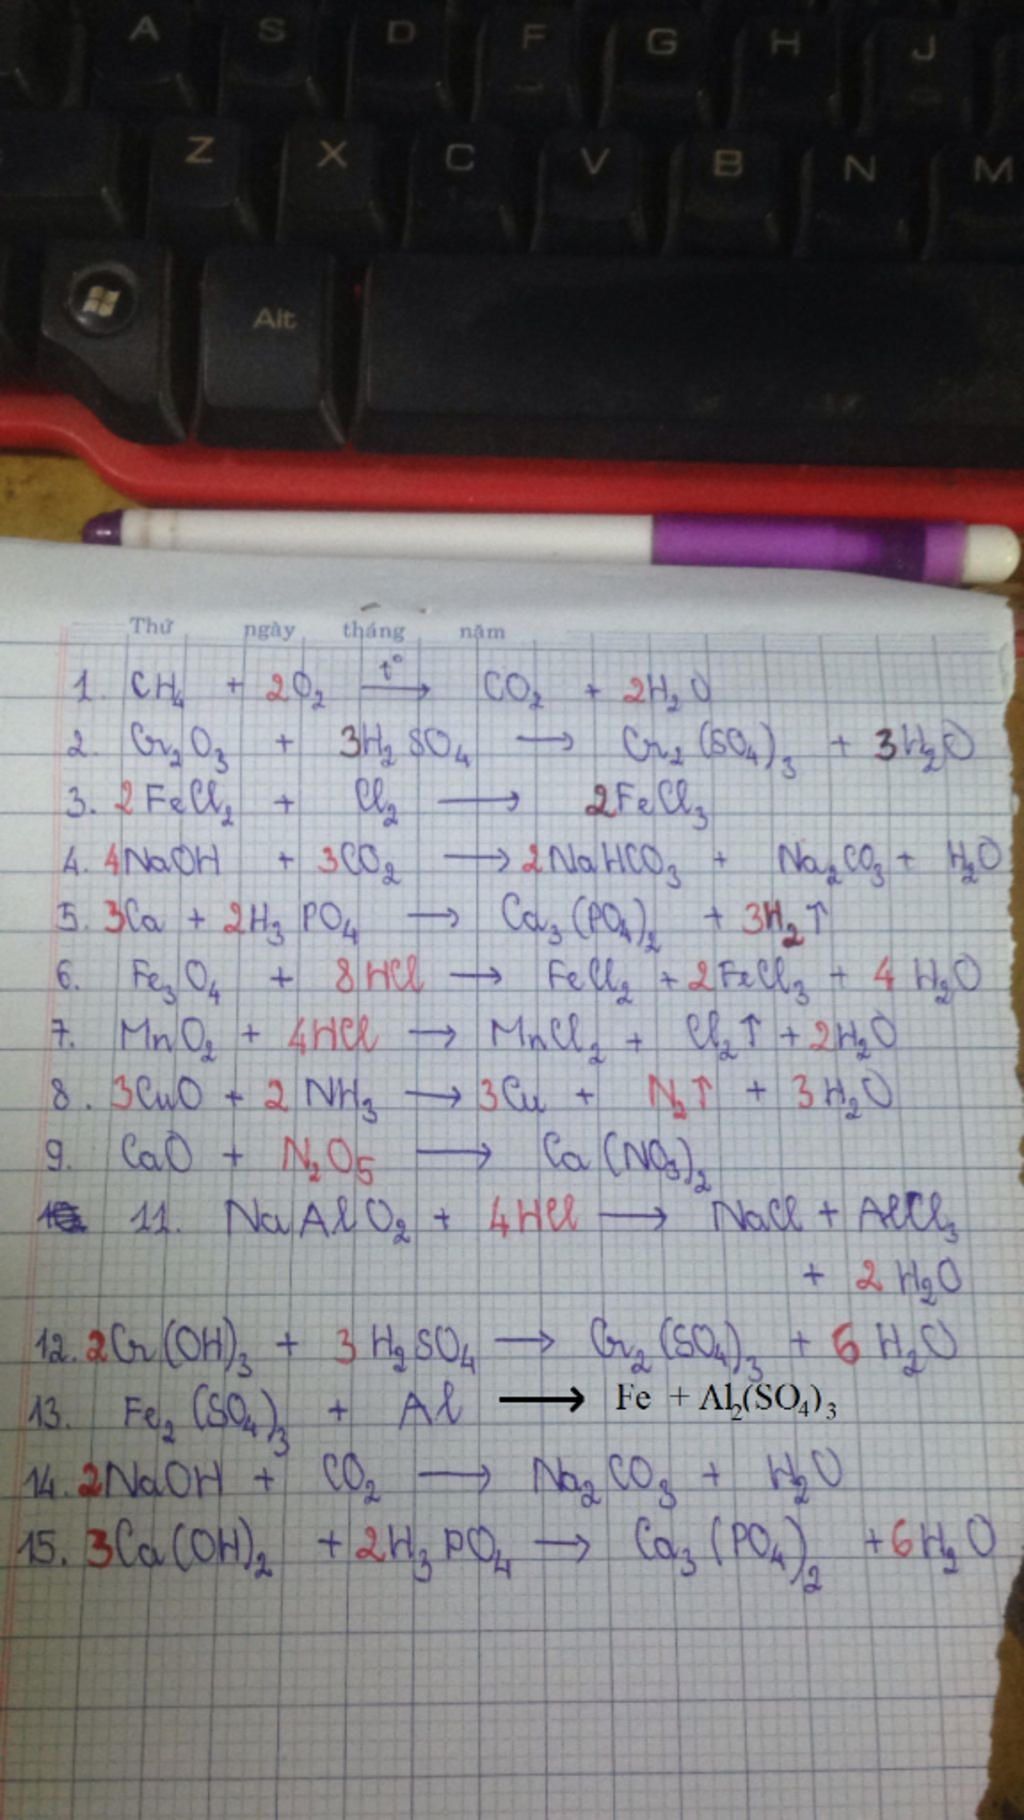 A S D F G H J
Z X C V B N M
Alt
Thứ ngày tháng năm
1. CH₄ + 2O₂ —t°→ CO₂ + 2H₂O
2. Cr₂O₃ + 3H₂SO₄ → Cr₂(SO₄)₃ + 3H₂O
3. 2FeCl₂ + Cl₂ → 2FeCl₃
4. 4NaOH + 3CO₂ → 2NaHCO₃ + Na₂CO₃ + H₂O
5. 3Ca + 2H₃PO₄ → Ca₃(PO₄)₂ + 3H₂↑
6. Fe₃O₄ + 8HCl → FeCl₂ + 2FeCl₃ + 4H₂O
7. MnO₂ + 4HCl → MnCl₂ + Cl₂↑ + 2H₂O
8. 3CuO + 2NH₃ → 3Cu + N₂↑ + 3H₂O
9. CaO + N₂O₅ → Ca(NO₃)₂
11. NaAlO₂ + 4HCl → NaCl + AlCl₃
+ 2H₂O
12. 2Cr(OH)₃ + 3H₂SO₄ → Cr₂(SO₄)₃ + 6H₂O
13. Fe₂(SO₄)₃ + Al → Fe + Al₂(SO₄)₃
14. 2NaOH + CO₂ → Na₂CO₃ + H₂O
15. 3Ca(OH)₂ + 2H₃PO₄ → Ca₃(PO₄)₂ + 6H₂O